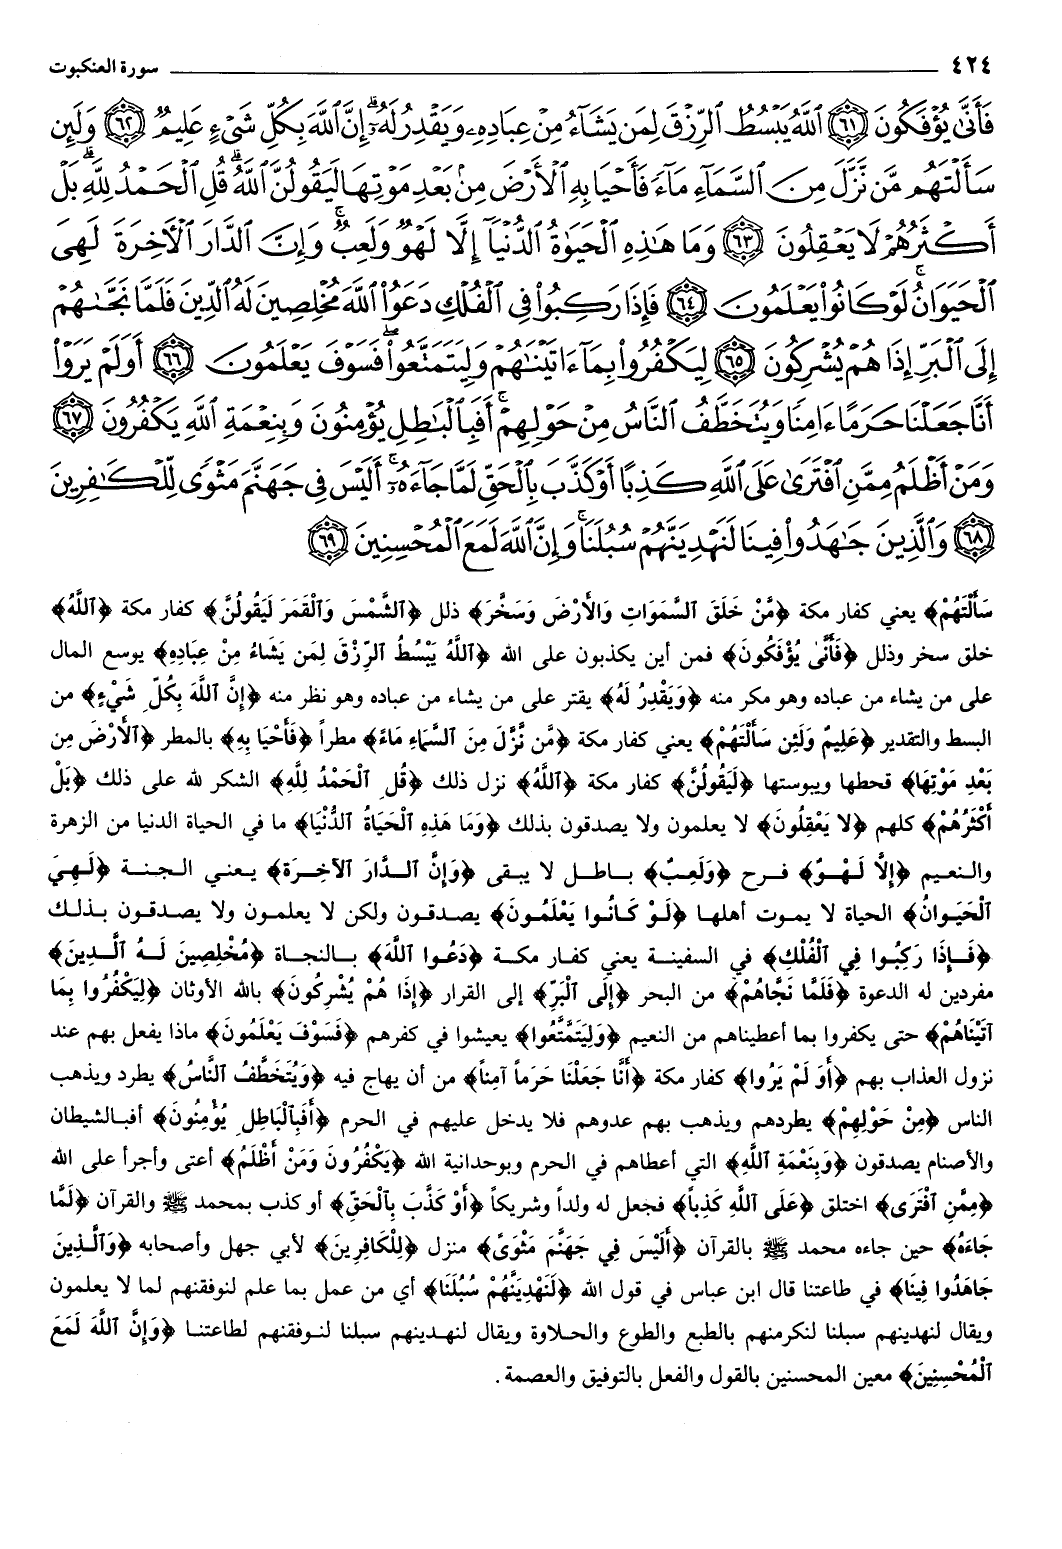 ٤٢٤ سورة العنكبوت
فَأَنَّىٰ يُؤْفَكُونَ ٦١ ٱللَّهُ يَبْسُطُ ٱلرِّزْقَ لِمَن يَشَآءُ مِنْ عِبَادِهِۦ وَيَقْدِرُ لَهُۥٓ ۚ إِنَّ ٱللَّهَ بِكُلِّ شَىْءٍ عَلِيمٌ ٦٢ وَلَئِن
سَأَلْتَهُم مَّن نَّزَّلَ مِنَ ٱلسَّمَآءِ مَآءً فَأَحْيَا بِهِ ٱلْأَرْضَ مِنۢ بَعْدِ مَوْتِهَا لَيَقُولُنَّ ٱللَّهُ ۚ قُلِ ٱلْحَمْدُ لِلَّهِ ۚ بَلْ
أَكْثَرُهُمْ لَا يَعْقِلُونَ ٦٣ وَمَا هَٰذِهِ ٱلْحَيَوٰةُ ٱلدُّنْيَآ إِلَّا لَهْوٌ وَلَعِبٌ ۚ وَإِنَّ ٱلدَّارَ ٱلْأَخِرَةَ لَهِىَ
ٱلْحَيَوَانُ ۚ لَوْ كَانُوا۟ يَعْلَمُونَ ٦٤ فَإِذَا رَكِبُوا۟ فِى ٱلْفُلْكِ دَعَوُا۟ ٱللَّهَ مُخْلِصِينَ لَهُ ٱلدِّينَ فَلَمَّا نَجَّىٰهُمْ
إِلَى ٱلْبَرِّ إِذَا هُمْ يُشْرِكُونَ ٦٥ لِيَكْفُرُوا۟ بِمَآ ءَاتَيْنَٰهُمْ وَلِيَتَمَتَّعُوا۟ ۖ فَسَوْفَ يَعْلَمُونَ ٦٦ أَوَلَمْ يَرَوْا۟
أَنَّا جَعَلْنَا حَرَمًا ءَامِنًا وَيُتَخَطَّفُ ٱلنَّاسُ مِنْ حَوْلِهِمْ ۚ أَفَبِٱلْبَٰطِلِ يُؤْمِنُونَ وَبِنِعْمَةِ ٱللَّهِ يَكْفُرُونَ ٦٧
وَمَنْ أَظْلَمُ مِمَّنِ ٱفْتَرَىٰ عَلَى ٱللَّهِ كَذِبًا أَوْ كَذَّبَ بِٱلْحَقِّ لَمَّا جَآءَهُۥٓ ۚ أَلَيْسَ فِى جَهَنَّمَ مَثْوًى لِّلْكَٰفِرِينَ
٦٨ وَٱلَّذِينَ جَٰهَدُوا۟ فِينَا لَنَهْدِيَنَّهُمْ سُبُلَنَا ۚ وَإِنَّ ٱللَّهَ لَمَعَ ٱلْمُحْسِنِينَ ٦٩
سَأَلْتَهُمْ﴾ يعني كفار مكة ﴿مَّنْ خَلَقَ ٱلسَّمَوَاتِ وَالأَرْضَ وَسَخَّرَ﴾ ذلل ﴿ٱلشَّمْسَ وَٱلْقَمَرَ لَيَقُولُنَّ﴾ كفار مكة ﴿ٱللَّهُ﴾
خلق سخر وذلل ﴿فَأَنَّىٰ يُؤْفَكُونَ﴾ فمن أين يكذبون على الله ﴿ٱللَّهُ يَبْسُطُ ٱلرِّزْقَ لِمَن يَشَاءُ مِنْ عِبَادِهِ﴾ يوسع المال
على من يشاء من عباده وهو مكر منه ﴿وَيَقْدِرُ لَهُ﴾ يقتر على من يشاء من عباده وهو نظر منه ﴿إِنَّ ٱللَّهَ بِكُلِّ شَيْءٍ﴾ من
البسط والتقدير ﴿عَلِيمٌ وَلَئِن سَأَلْتَهُمْ﴾ يعني كفار مكة ﴿مَّن نَّزَّلَ مِنَ ٱلسَّمَاءِ مَاءً﴾ مطراً ﴿فَأَحْيَا بِهِ﴾ بالمطر ﴿ٱلأَرْضَ مِن
بَعْدِ مَوْتِهَا﴾ قحطها ويبوستها ﴿لَيَقُولُنَّ﴾ كفار مكة ﴿ٱللَّهُ﴾ نزل ذلك ﴿قُلِ ٱلْحَمْدُ لِلَّهِ﴾ الشكر لله على ذلك ﴿بَلْ
أَكْثَرُهُمْ﴾ كلهم ﴿لَا يَعْقِلُونَ﴾ لا يعلمون ولا يصدقون بذلك ﴿وَمَا هَذِهِ ٱلْحَيَاةُ ٱلدُّنْيَا﴾ ما في الحياة الدنيا من الزهرة
والنعيم ﴿إِلَّا لَهْوٌ﴾ فرح ﴿وَلَعِبٌ﴾ باطل لا يبقى ﴿وَإِنَّ ٱلدَّارَ ٱلآخِرَةَ﴾ يعني الجنة ﴿لَهِيَ
ٱلْحَيَوانُ﴾ الحياة لا يموت أهلها ﴿لَوْ كَانُوا يَعْلَمُونَ﴾ يصدقون ولكن لا يعلمون ولا يصدقون بذلك
﴿فَإِذَا رَكِبُوا فِي ٱلْفُلْكِ﴾ في السفينة يعني كفار مكة ﴿دَعُوا ٱللَّهَ﴾ بالنجاة ﴿مُخْلِصِينَ لَهُ ٱلدِّينَ﴾
مفردين له الدعوة ﴿فَلَمَّا نَجَّاهُمْ﴾ من البحر ﴿إِلَى ٱلْبَرِّ﴾ إلى القرار ﴿إِذَا هُمْ يُشْرِكُونَ﴾ بالله الأوثان ﴿لِيَكْفُرُوا بِمَا
آتَيْنَاهُمْ﴾ حتى يكفروا بما أعطيناهم من النعيم ﴿وَلِيَتَمَتَّعُوا﴾ يعيشوا في كفرهم ﴿فَسَوْفَ يَعْلَمُونَ﴾ ماذا يفعل بهم عند
نزول العذاب بهم ﴿أَوَ لَمْ يَرُوا﴾ كفار مكة ﴿أَنَّا جَعَلْنَا حَرَماً آمِناً﴾ من أن يهاج فيه ﴿وَيُتَخَطَّفُ ٱلنَّاسُ﴾ يطرد ويذهب
الناس ﴿مِنْ حَوْلِهِمْ﴾ يطردهم ويذهب بهم عدوهم فلا يدخل عليهم في الحرم ﴿أَفَبِٱلْبَاطِلِ يُؤْمِنُونَ﴾ أفبالشيطان
والأصنام يصدقون ﴿وَبِنِعْمَةِ ٱللَّهِ﴾ التي أعطاهم في الحرم وبوحدانية الله ﴿يَكْفُرُونَ وَمَنْ أَظْلَمُ﴾ أعتى وأجرأ على الله
﴿مِمَّنِ ٱفْتَرَى﴾ اختلق ﴿عَلَى ٱللَّهِ كَذِباً﴾ فجعل له ولداً وشريكاً ﴿أَوْ كَذَّبَ بِٱلْحَقِّ﴾ أو كذب بمحمد ﷺ والقرآن ﴿لَمَّا
جَاءَهُ﴾ حين جاءه محمد ﷺ بالقرآن ﴿أَلَيْسَ فِي جَهَنَّمَ مَثْوًى﴾ منزل ﴿لِلْكَافِرِينَ﴾ لأبي جهل وأصحابه ﴿وَٱلَّذِينَ
جَاهَدُوا فِينَا﴾ في طاعتنا قال ابن عباس في قول الله ﴿لَنَهْدِيَنَّهُمْ سُبُلَنَا﴾ أي من عمل بما علم لنوفقنهم لما لا يعلمون
ويقال لنهدينهم سبلنا لنكرمنهم بالطبع والطوع والحلاوة ويقال لنهدينهم سبلنا لنوفقنهم لطاعتنا ﴿وَإِنَّ ٱللَّهَ لَمَعَ
ٱلْمُحْسِنِينَ﴾ معين المحسنين بالقول والفعل بالتوفيق والعصمة .